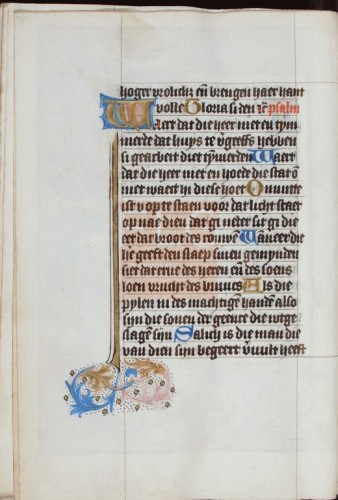 hoger vrolichz en̄ brengen haer hant
volle Gloria si den ꝛc̄ psalm
Waert dat die heer niet en tym
merde dat huys te v̄geefs hebben
si gearbeit die tȳmerden Waert
dat die heer niet en hoede die stat om̄
niet waect hi diese hoet Onnutte
ist v op te staen voor dat licht staet
op nae dien dat gi neder sit gi die
eet dat broot des rouwen̄ Wanneer die
he geeft den slaep sinen gemynden
siet dat erue des heren en̄ des soens
loen vrucht des buucs Als die
pylen in des machtigen handen̄ also
syn die sonen der geenre die wtge
slagen syn Salich is die man die
van dien syn begeert v̄uult heeft